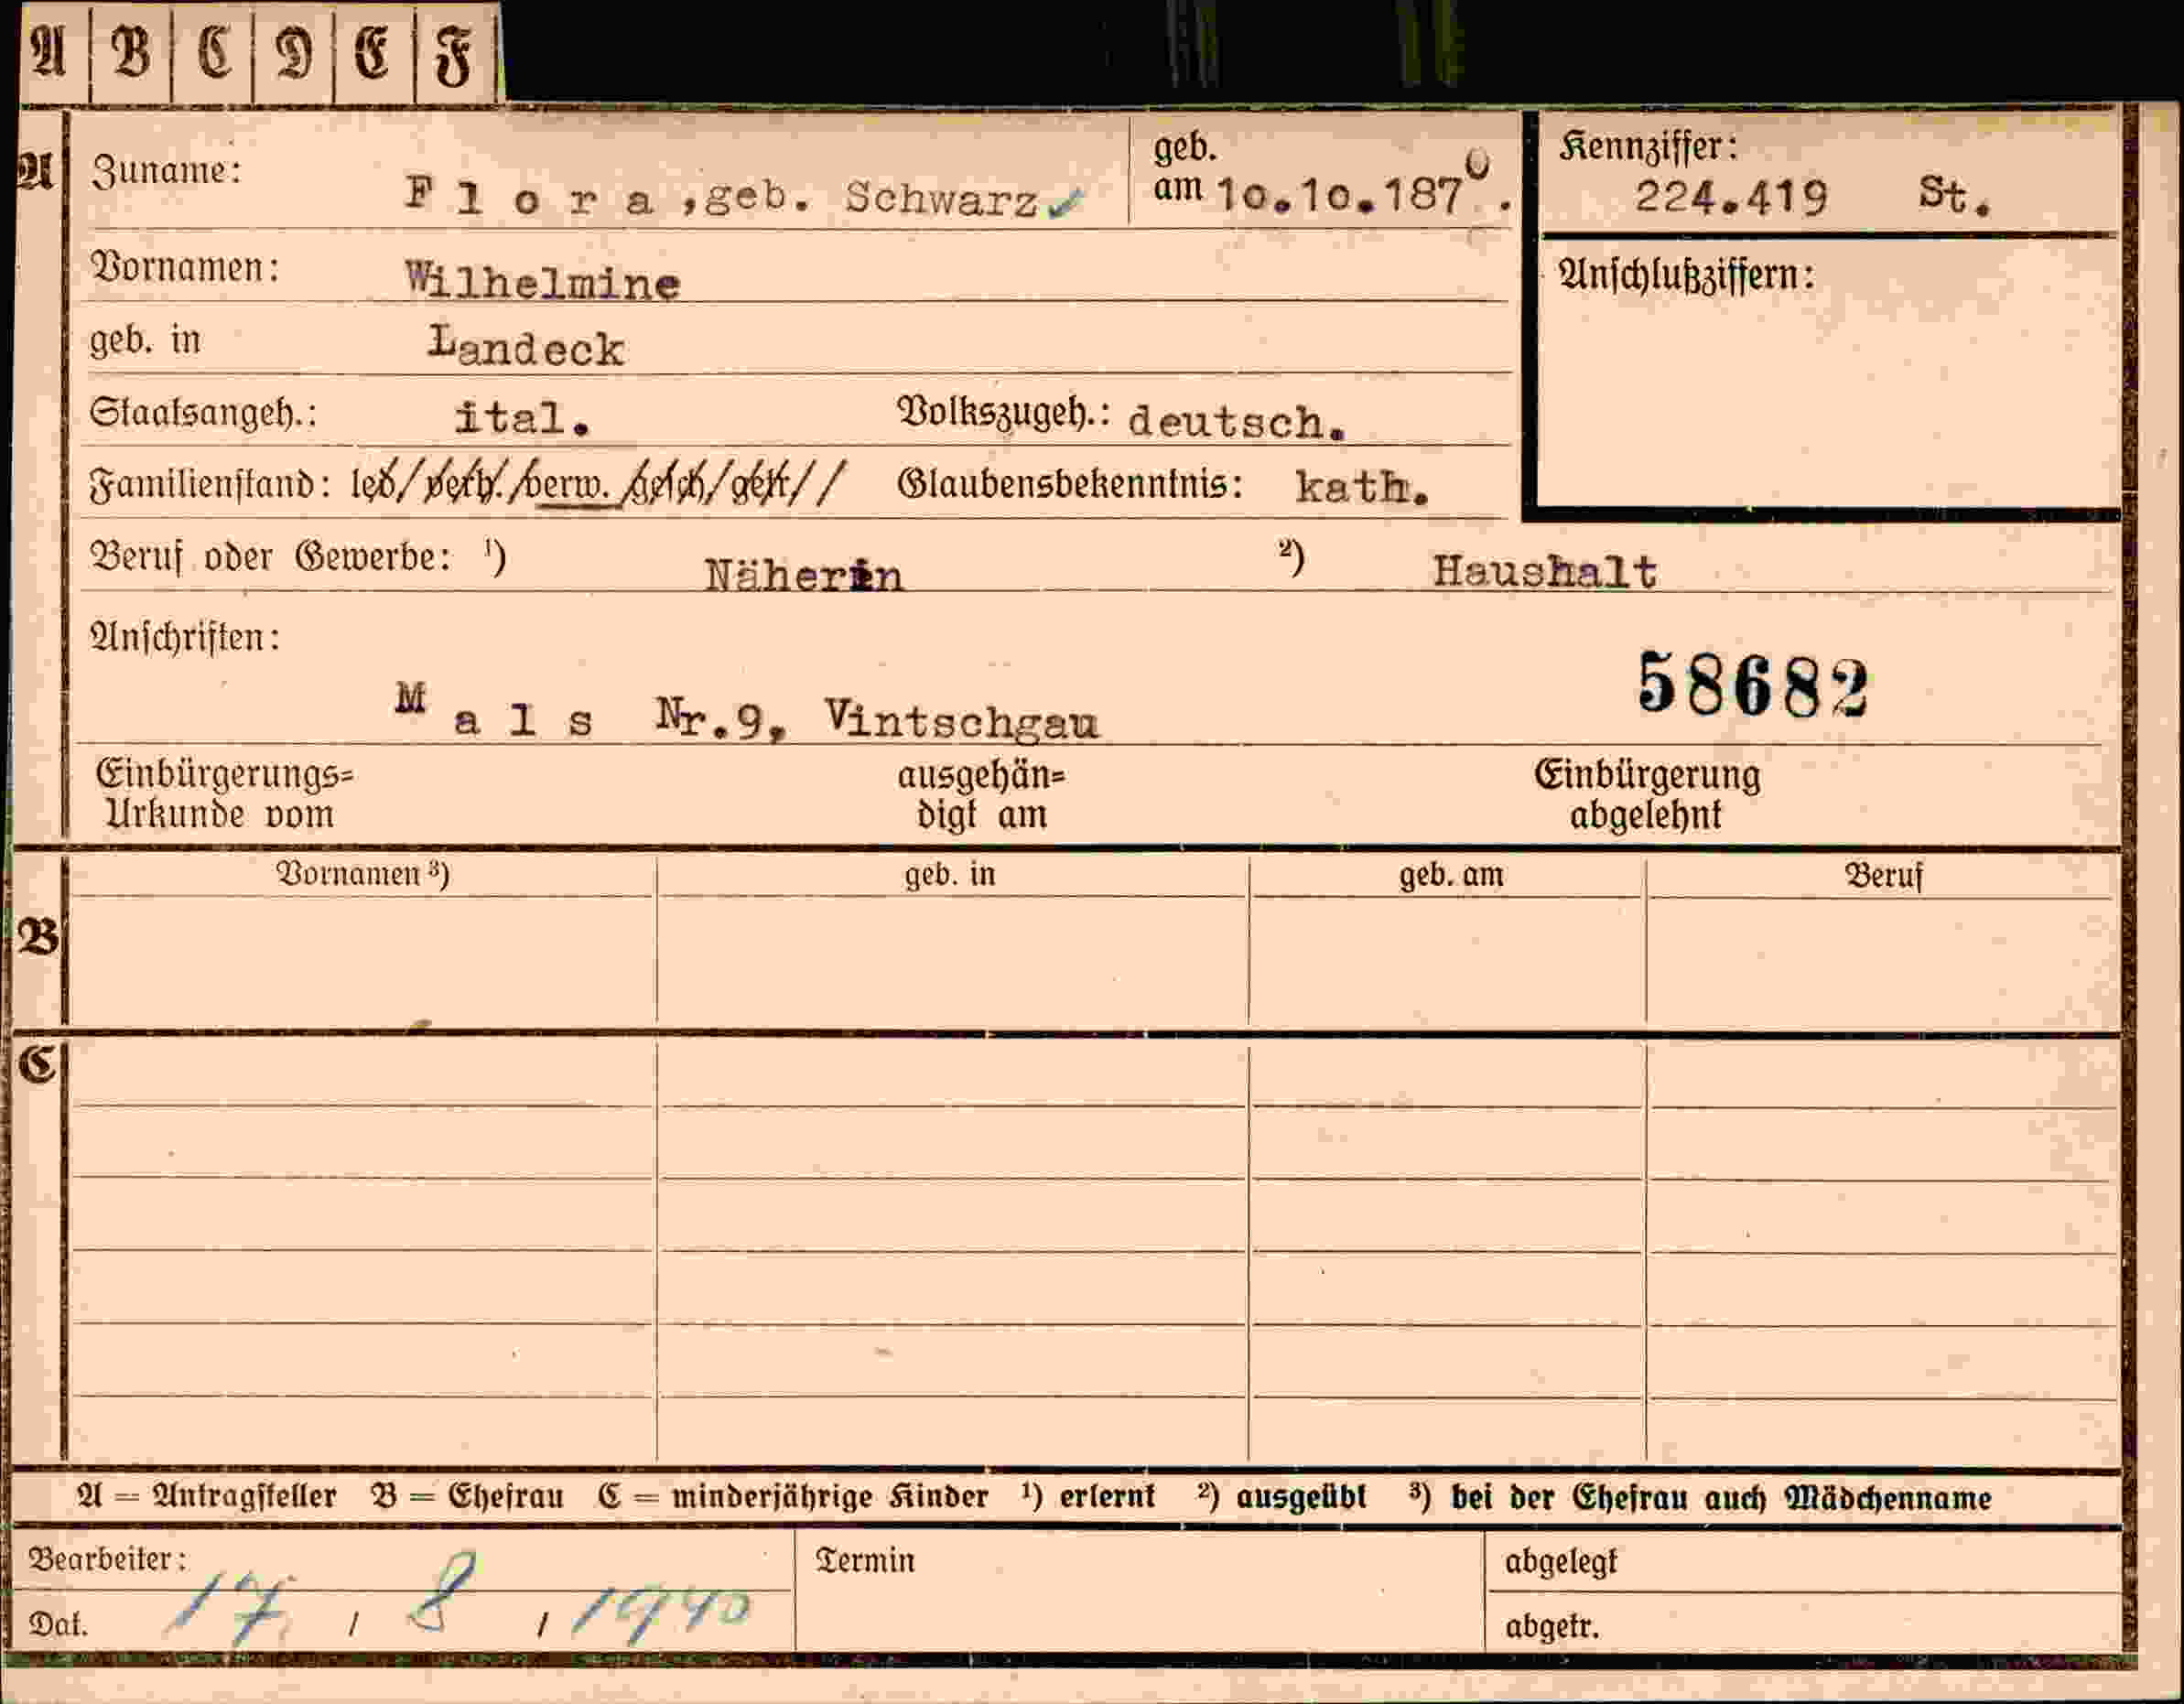 A B C D E F
A Zuname: Flora, geb. Schwarz geb. am 10.10.1870. Kennziffer: 224.419 St.
Vornamen: Wilhelmine Anschlußziffern:
geb. in Landeck
Staatsangeh.: ital. Volkszugeh.: deutsch.
Familienstand: led/verh./verw./gesch/getr// Glaubensbekenntnis: kath.
Beruf oder Gewerbe: 1) Näherin 2) Haushalt
Anschriften:
58682
Mals Nr.9, Vintschgau
Einbürgerungs= ausgehän= Einbürgerung
Urkunde vom digt am abgelehnt
Vornamen 3) geb. in geb. am Beruf
B
C
A = Antragsteller B = Ehefrau C = minderjährige Kinder 1) erlernt 2) ausgeübt 3) bei der Ehefrau auch Mädchenname
Bearbeiter: Termin abgelegt
Dat. 17 / 8 / 1940 abgetr.